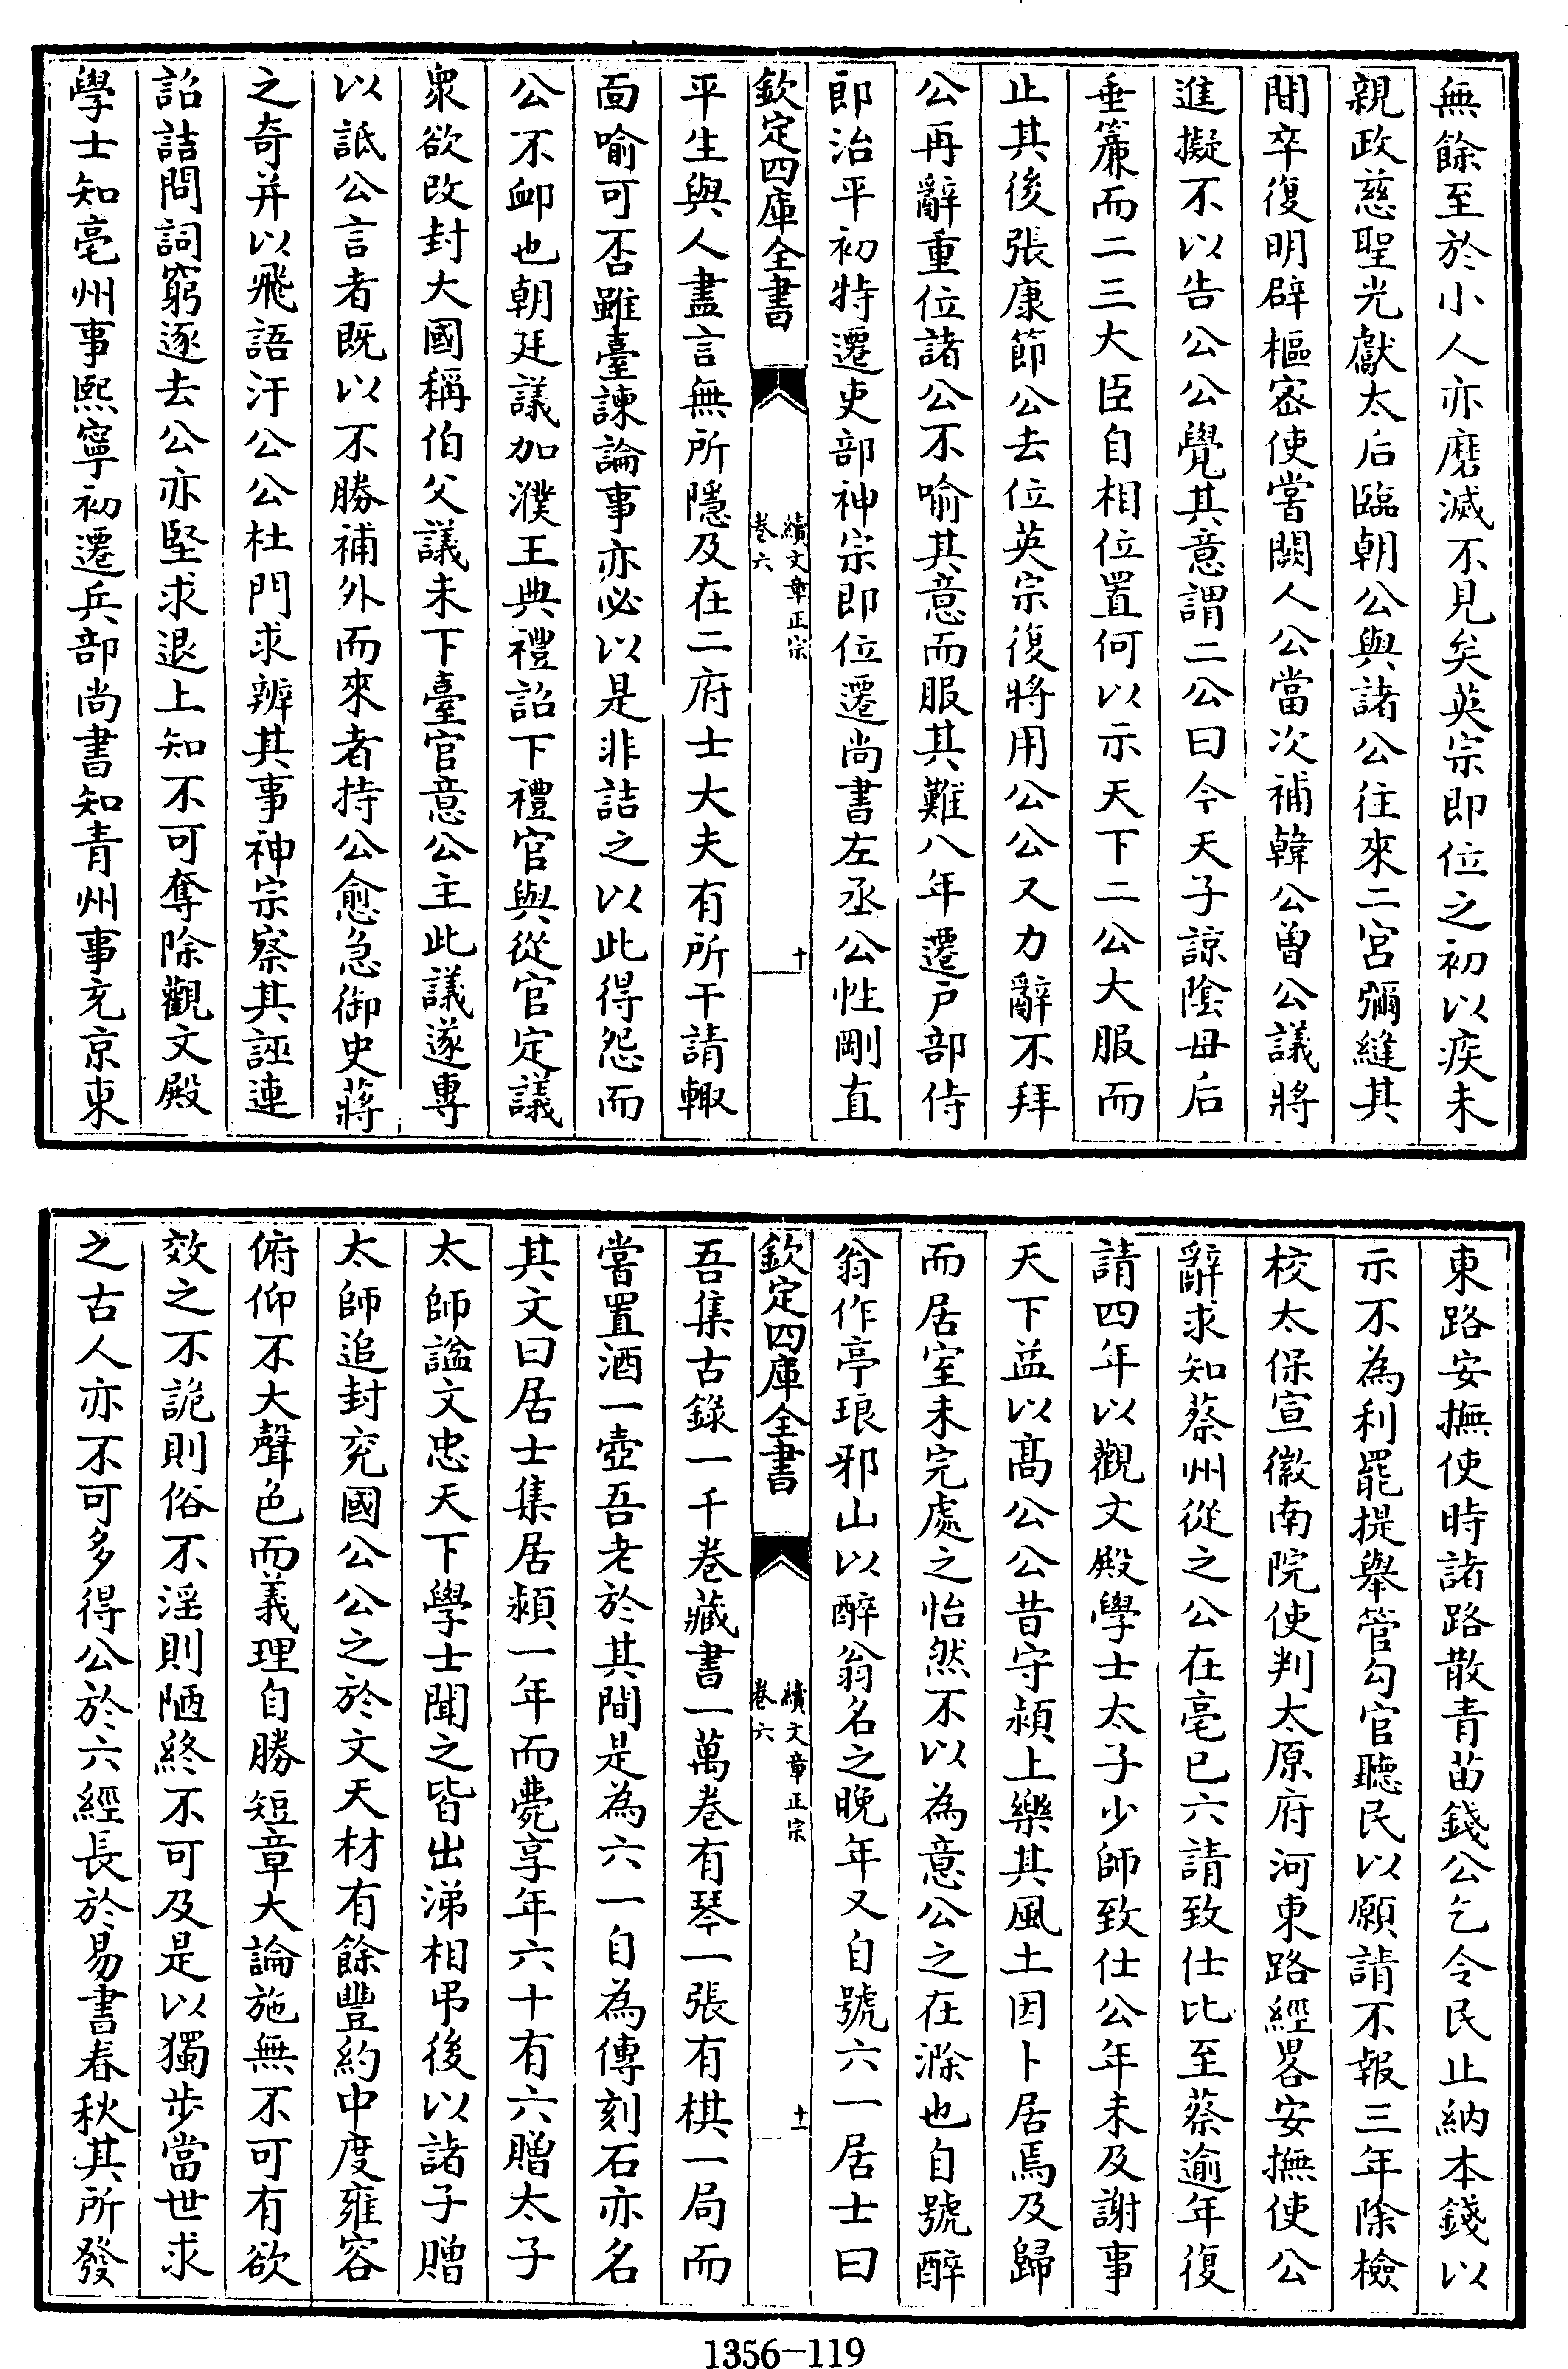 無餘至於小人亦磨滅不見矣英宗即位之初以疾未
親政慈聖光獻太后臨朝公與諸公往來二宮彌縫其
間卒復明辟樞宻使嘗闕人公當次補韓公曽公議將
進擬不以告公公覺其意謂二公曰今天子諒陰母后
垂簾而二三大臣自相位置何以示天下二公大服而
止其後張康節公去位英宗復將用公公又力辭不拜
公再辭重位諸公不喻其意而服其難八年遷户部侍
郎治平初特遷吏部神宗即位遷尚書左丞公性剛直
欽定四庫全書
續文章正宗
卷六
十
平生與人盡言無所隱及在二府士大夫有所干請輙
面喻可否雖臺諫論事亦必以是非詰之以此得怨而
公不卹也朝廷議加濮王典禮詔下禮官與從官定議
衆欲改封大國稱伯父議未下臺官意公主此議遂專
以詆公言者既以不勝補外而來者持公愈急御史蔣
之奇并以飛語汙公公杜門求辨其事神宗察其誣連
詔詰問詞窮逐去公亦堅求退上知不可奪除觀文殿
學士知亳州事熙寧初遷兵部尚書知青州事充京東
東路安撫使時諸路散青苗錢公乞令民止納本錢以
示不為利罷提舉管勾官聽民以願請不報三年除檢
校太保宣徽南院使判太原府河東路經畧安撫使公
辭求知蔡州從之公在亳已六請致仕比至蔡逾年復
請四年以觀文殿學士太子少師致仕公年未及謝事
天下益以髙公公昔守潁上樂其風土因卜居焉及歸
而居室未完處之怡然不以為意公之在滁也自號醉
翁作亭琅邪山以醉翁名之晚年又自號六一居士曰
欽定四庫全書
續文章正宗
卷六
十一
吾集古錄一千卷藏書一萬卷有琴一張有棋一局而
嘗置酒一壺吾老於其間是為六一自為傳刻石亦名
其文曰居士集居潁一年而薨享年六十有六贈太子
太師諡文忠天下學士聞之皆出涕相弔後以諸子贈
太師追封兖國公公之於文天材有餘豐約中度雍容
俯仰不大聲色而義理自勝短章大論施無不可有欲
效之不詭則俗不淫則陋終不可及是以獨步當世求
之古人亦不可多得公於六經長於易書春秋其所發
1356-119